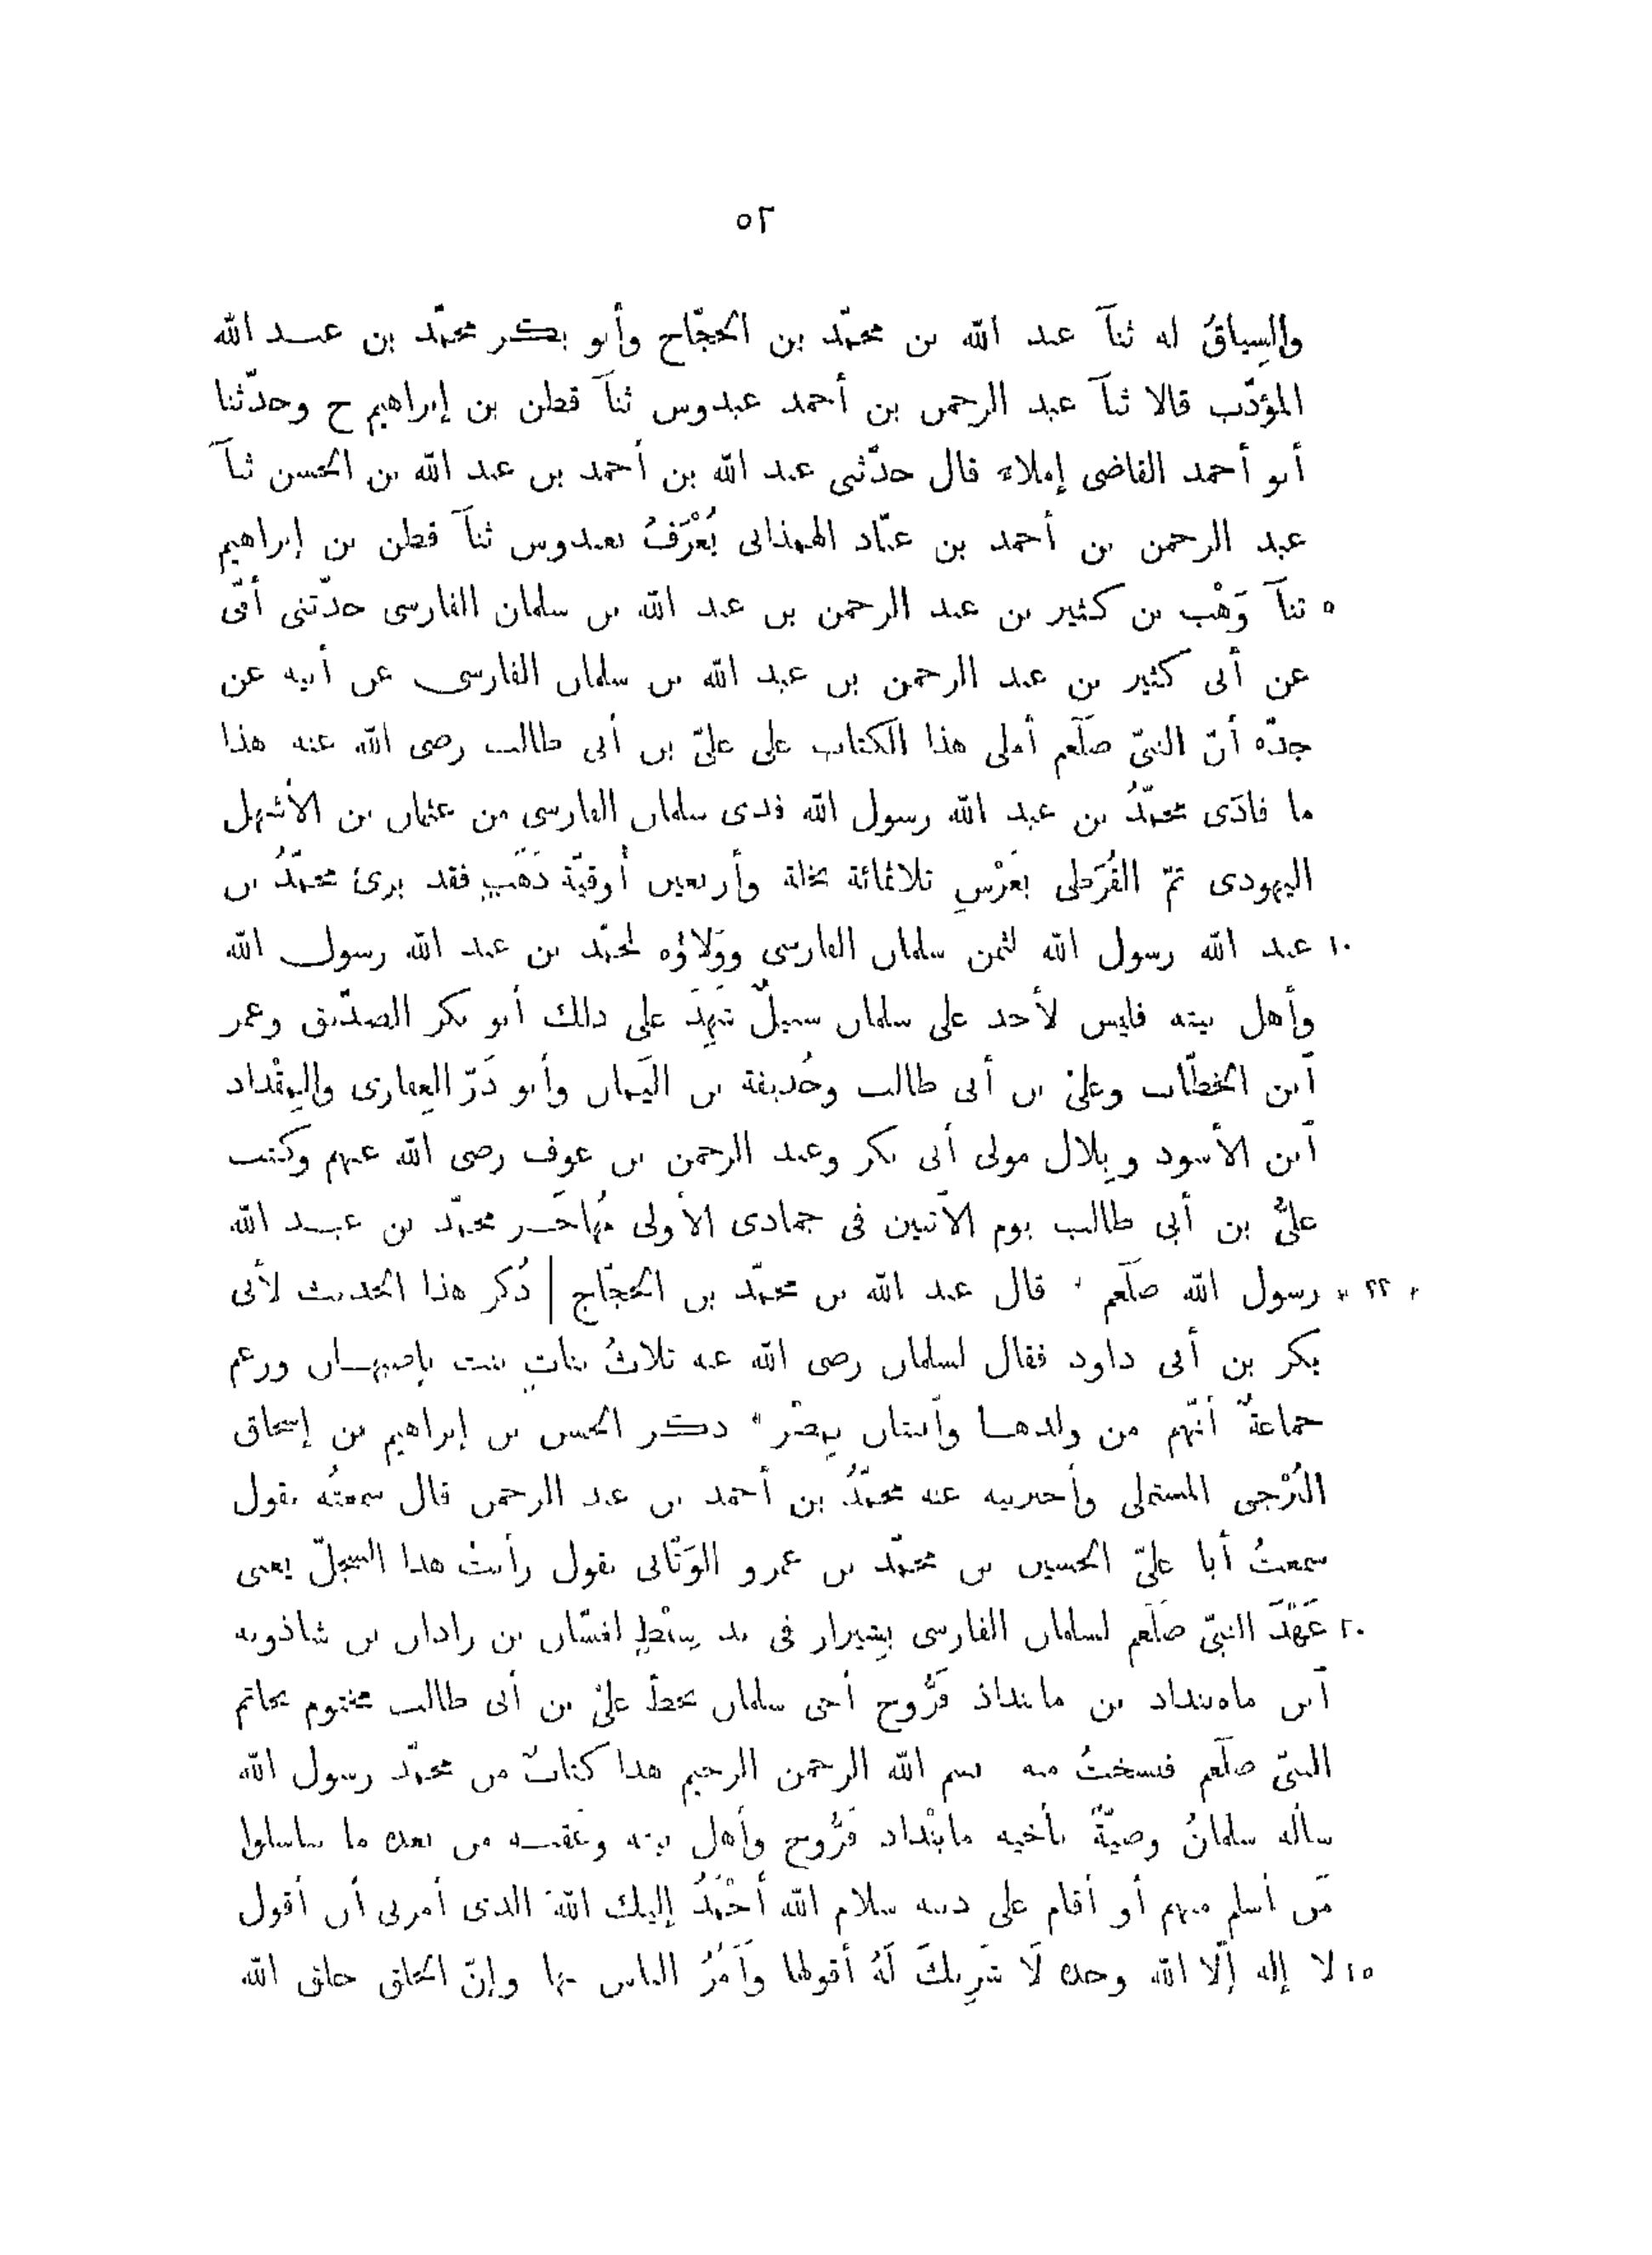 ٥٢
والسِياقُ له ثنآ عبد الله بن محمّد بن الحجّاج وأبو بكر محمّد بن عبد الله
المؤدّب قالا ثنآ عبد الرحمن بن أحمد عبدوس ثنآ قطن بن إبراهيم ح وحدّثنا
أبو أحمد القاضى إملاء قال حدّثنى عبد الله بن أحمد بن عبد الله بن الحسن ثنآ
عبد الرحمن بن أحمد بن عبّاد الهمذانى يُعْرَفُ بعبدوس ثنآ قطن بن إبراهيم
٥ ثنآ وَهْب بن كثير بن عبد الرحمن بن عبد الله بن سلمان الفارسى حدّثتنى أمّى
عن أبى كثير بن عبد الرحمن بن عبد الله بن سلمان الفارسى عن أبيه عن
جدّه أنّ النبىّ صلّعم أملى هذا الكتاب على علىّ بن أبى طالب رضى الله عنه هذا
ما فادَى محمّدُ بن عبد الله رسول الله فدى سلمان الفارسى من عثمان بن الأشهل
اليهودى ثمّ القُرَظى بغَرْسِ ثلاثمائة نخلة وأربعين أُوقيّة ذَهَبٍ فقد برئ محمّدُ بن
١٠ عبد الله رسول الله لثمن سلمان الفارسى ووَلاؤه لمحمّد بن عبد الله رسول الله
وأهل بيته فليس لأحد على سلمان سبيلٌ شَهِدَ على ذلك أبو بكر الصدّيق وعمر
آبن الخطّاب وعلىّ بن أبى طالب وحُذيفة بن اليَمان وأبو ذَرّ الغِفارى والمِقْداد
آبن الأسود وبِلال مولى أبى بكر وعبد الرحمن بن عوف رضى الله عنهم وكتب
علىُّ بن أبي طالب يوم الآثنين فى جمادى الأولى مُهاجَر محمّد بن عبد الله
* ٢٢ * رسول الله صلّعم ' قال عبد الله بن محمّد بن الحجّاج | ذُكر هذا الحديث لأبى
بكر بن أبى داود فقال لسلمان رضى الله عنه ثلاثُ بناتٍ بنت بإصبهان وزعم
جماعةٌ أنّهم من ولدها وآبنتان بمِصْر " ذكر الحسن بن إبراهيم بن إسحاق
البُرْجى المستملى وأخبرنيه عنه محمّدُ بن أحمد بن عبد الرحمن قال سمعتُه يقول
سمعتُ أبا علىّ الحسين بن محمّد بن عمرو الوَثّابى يقول رأيتُ هذا السِجلّ يعنى
٢٠ عَهْدَ النبىّ صلّعم لسلمان الفارسى بِشيراز فى يد سِبْطٍ لغسّان بن زاذان بن شاذويه
آبن ماه‌بنداد بن مابنداذ فَرُّوخ أخى سلمان بخطّ علىّ بن أبى طالب مختوم بخاتم
النبىّ صلّعم فنسختُ منه بسم الله الرحمن الرحيم هذا كتابٌ من محمّد رسول الله
سأله سلمانُ وصيّةً بأخيه مابنْداد فَرُّوخ وأهل بيته وعَقِبه من بعده ما تناسلوا
مَن أسلم منهم أو أقام على دينه سلام الله أَحْمَدُ إليك اللهَ الذى أمرنى أن أقول
٢٥ لا إله إلّا الله وحده لَا شَرِيكَ لَهُ أقولها وآمُرُ الناس بها وإنّ الخلق خلق الله